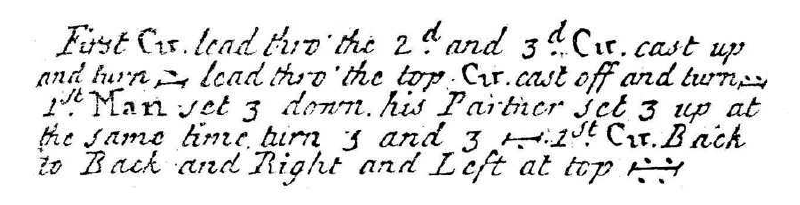 First Cu. lead thro' the 2.d and 3.d Cu. cast up
and turn lead thro' the top Cu. cast off and turn
1.st Man set 3 down. his Partner set 3 up at
the same time turn 3 and 3 1.st Cu. Back
to Back and Right and Left at top